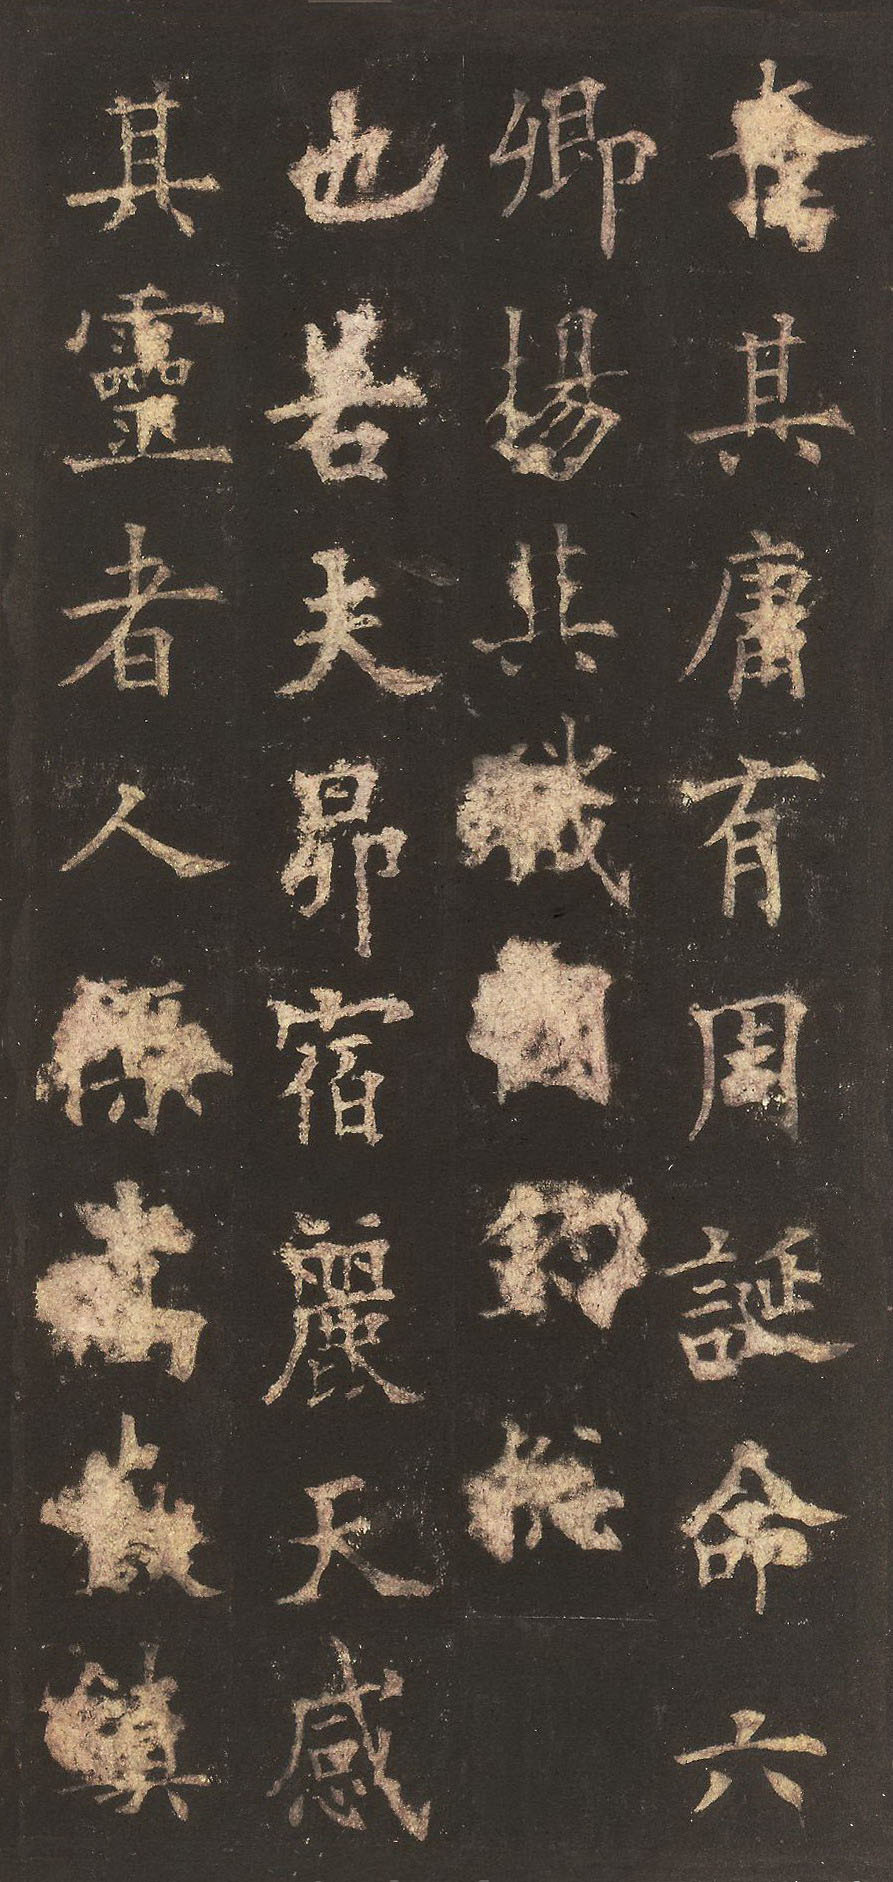 其庸有周誕命六
卿揚其職
也若夫昴宿麗天感
其靈者人鎮